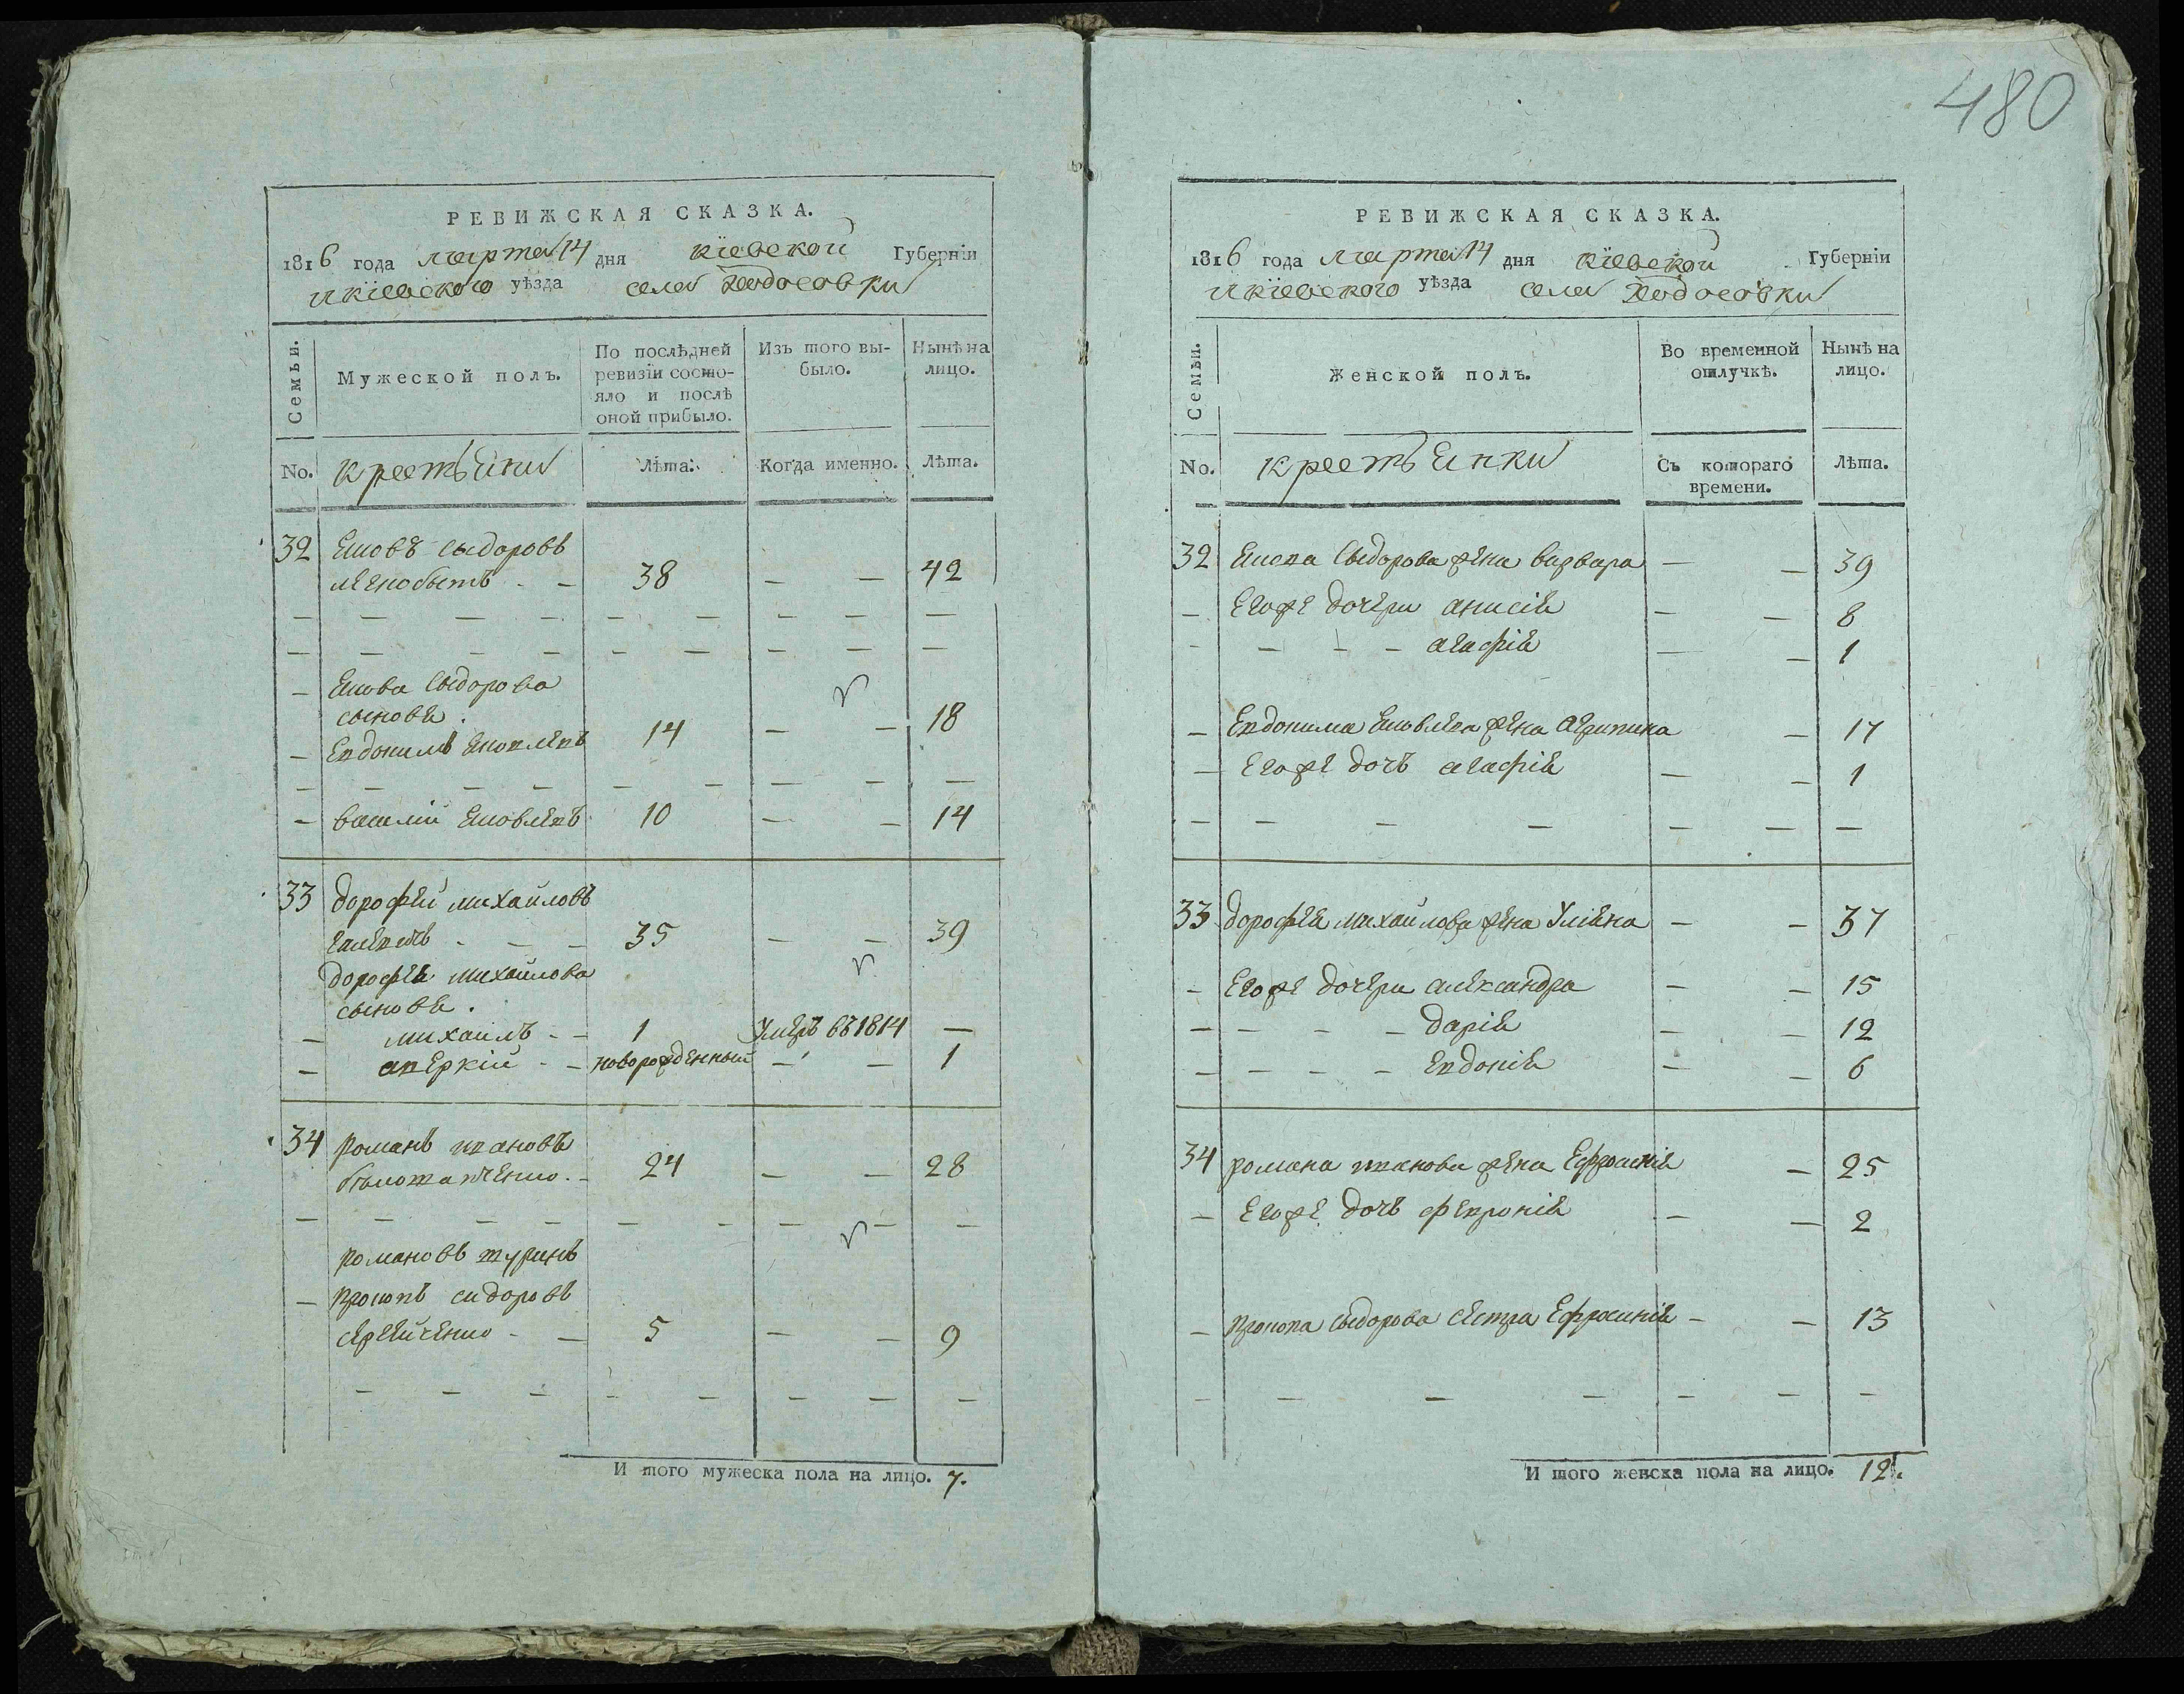 480
РЕВИЖСКАЯ СКАЗКА.
1816 года марта 14 дня кіевской Губерніи
икіевского уѣзда села Ходосовки
Семьи.
Мужеской полъ.
По послѣдней ревизіи состо-
яло и послѣ оной прибыло.
Изъ того вы-
было.
Нынѣ на лицо.
No. крестьяни Лѣта. Когда именно. Лѣта.
32 Яковъ Сыдоровъ
38 — — 42
— Якова Сыдорова
сыновя.
— Евдокимъ Яковлевъ 14 — — 18
— василій Яковлевъ 10 — — 14
33 дорофей михайловъ
35 — — 39
дорофея михайлова
сыновя.
— михаилъ - - 1 Умеръ въ 1814 —
— аверкій - - новорожденный — — 1
34 романъ ивановъ
24 — — 28
романовъ шуринъ
— прокопъ сидоровъ
сергѣйченко - — 5 — — 9
И того мужеска пола на лицо. 7.
РЕВИЖСКАЯ СКАЗКА.
1816 года марта 14 дня кіевской Губерніи
икіевского уѣзда села Ходосовки
Семьи.
Женской полъ.
Во временной отлучкѣ.
Нынѣ на лицо.
No. крестьянки Съ котораго времени. Лѣта.
32 Якова Сыдорова жена варвара — — 39
— Егоже дочери анисія — — 8
- — - — агафія — — 1
— Евдокима Яковлева жена Агрипина — 17
— Егоже дочь агафія — — 1
33 дорофея михайлова жена Уліяна — — 37
- Егоже дочери александра — — 15
— — - — дарія — — 12
- — — — Евдокія — — 6
34 романа иванова жена Ефросинія — 25
— Егоже дочь февронія — — 2
— прокопа сыдорова сестра Ефросинія — — 13
И того женска пола на лицо. 12.